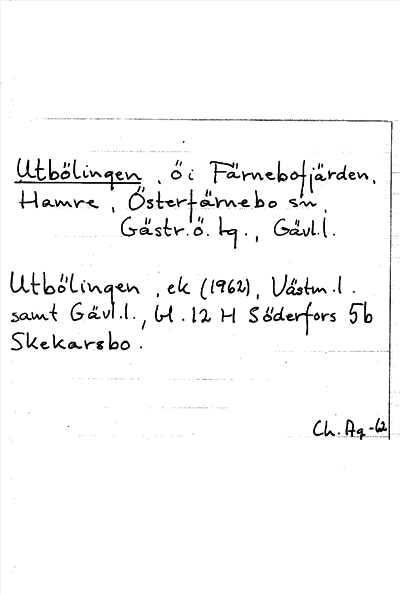 Utbölingen, ö i Färnebofjärden,
Hamre, Österfärnebo sn,
Gästr.ö. tg., Gävl.l.
Utbölingen, ek (1962), Västm.l.
samt Gävl.l., bl. 12 H Söderfors 5b
Skekarsbo.
Ch. Ag -62